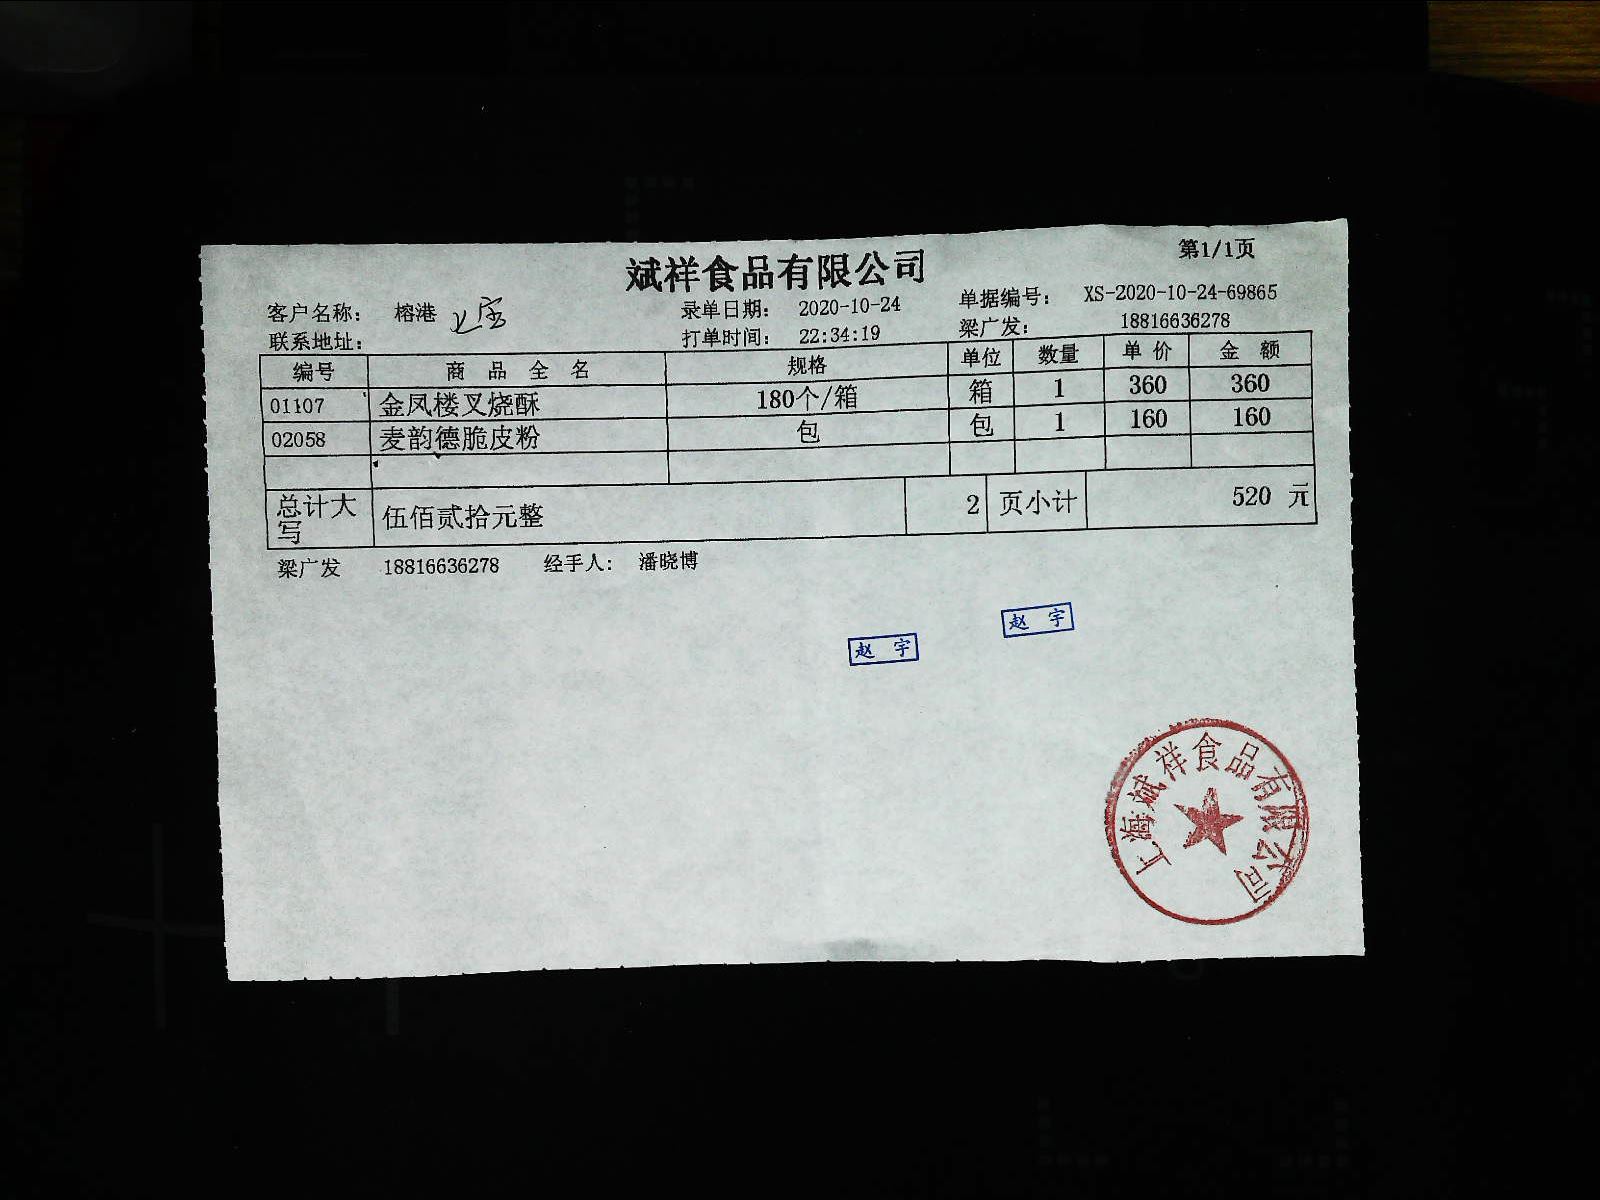 第1/1页
斌祥食品有限公司
客户名称： 榕港 录单日期： 2020-10-24 单据编号： XS-2020-10-24-69865
联系地址： 打单时间： 22:34:19 梁广发： 18816636278
编号 商品全名 规格 单位 数量 单价 金额
01107 金凤楼叉烧酥 180个/箱 箱 1 360 360
02058 麦韵德脆皮粉 包 包 1 160 160
总计大写 伍佰贰拾元整 2 页小计 520 元
梁广发 18816636278 经手人： 潘晓博
赵 宇
赵 宇
上海斌祥食品有限公司